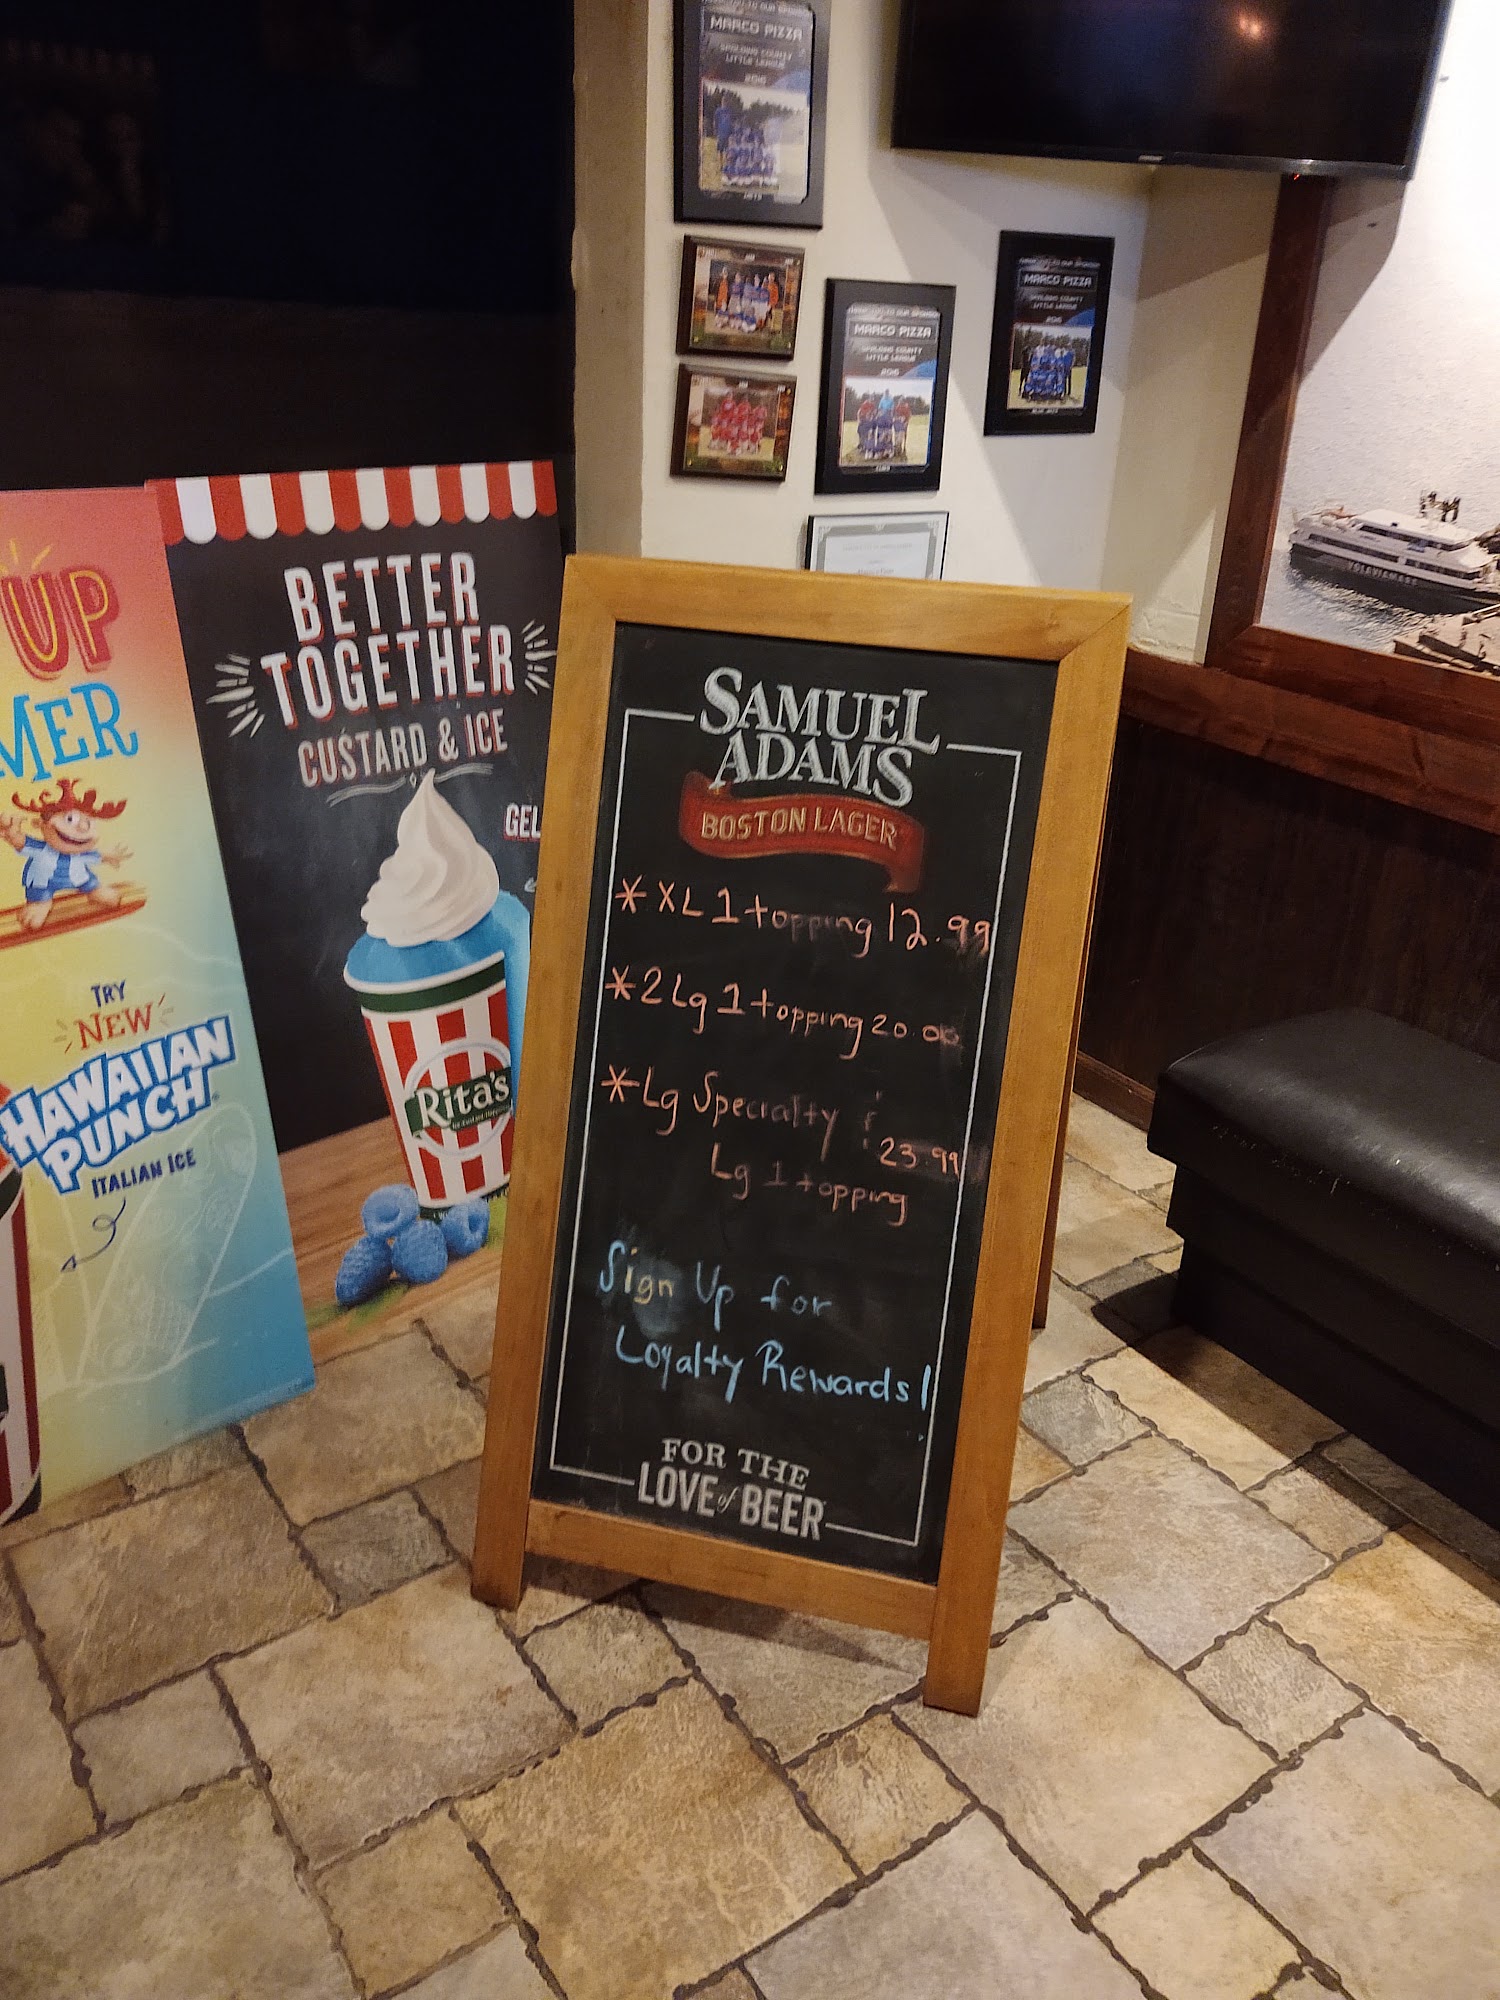 MARCO PIZZA
SPALDING COUNTY
LITTLE LEAGUE
2016
MARCO PIZZA
SPALDING COUNTY
LITTLE LEAGUE
2016
MARCO PIZZA
SPALDING COUNTY
LITTLE LEAGUE
2016
UP
MER
TRY
NEW
HAWAIIAN
PUNCH
ITALIAN ICE
BETTER
TOGETHER
CUSTARD & ICE
GEL
Rita's
SAMUEL
ADAMS
BOSTON LAGER
* XL 1 topping 12.99
* 2 Lg 1 topping 20.00
* Lg Specialty &
23.99
Lg 1 topping
Sign Up for
Loyalty Rewards!
FOR THE
LOVE of BEER